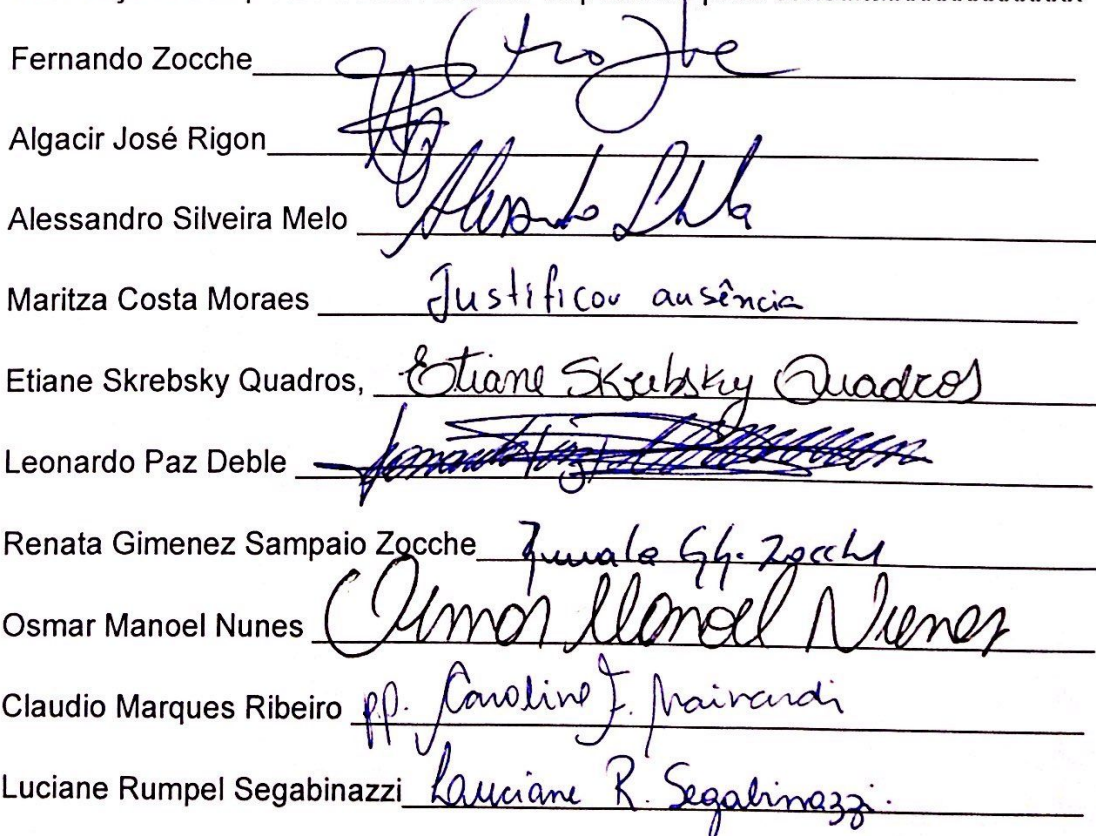 Fernando Zocche
Algacir José Rigon
Alessandro Silveira Melo
Maritza Costa Moraes Justificou ausência
Etiane Skrebsky Quadros, Etiane Skrebsky Quadros
Leonardo Paz Deble
Renata Gimenez Sampaio Zocche Zocche
Osmar Manoel Nunes Osmar Manoel Nunes
Claudio Marques Ribeiro p.p. Caroline F. Mainardi
Luciane Rumpel Segabinazzi Luciane R. Segabinazzi.